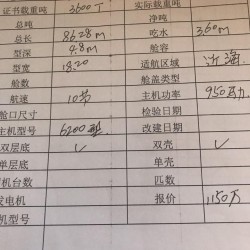 证书载重吨 3600T 实际载重吨
总吨 净吨
总长 86.28m 吃水 3.60m
型深 4.8m 舱容
型宽 18.20 适航区域 沂海
舱数 舱盖类型
航速 10节 主机功率 950
舱口尺寸 检验日期
主机型号 6200 改建日期
双层底 ✓ 双壳 ✓
单层底 单壳
机台数 匹数
发电机 报价 1150万
机型号